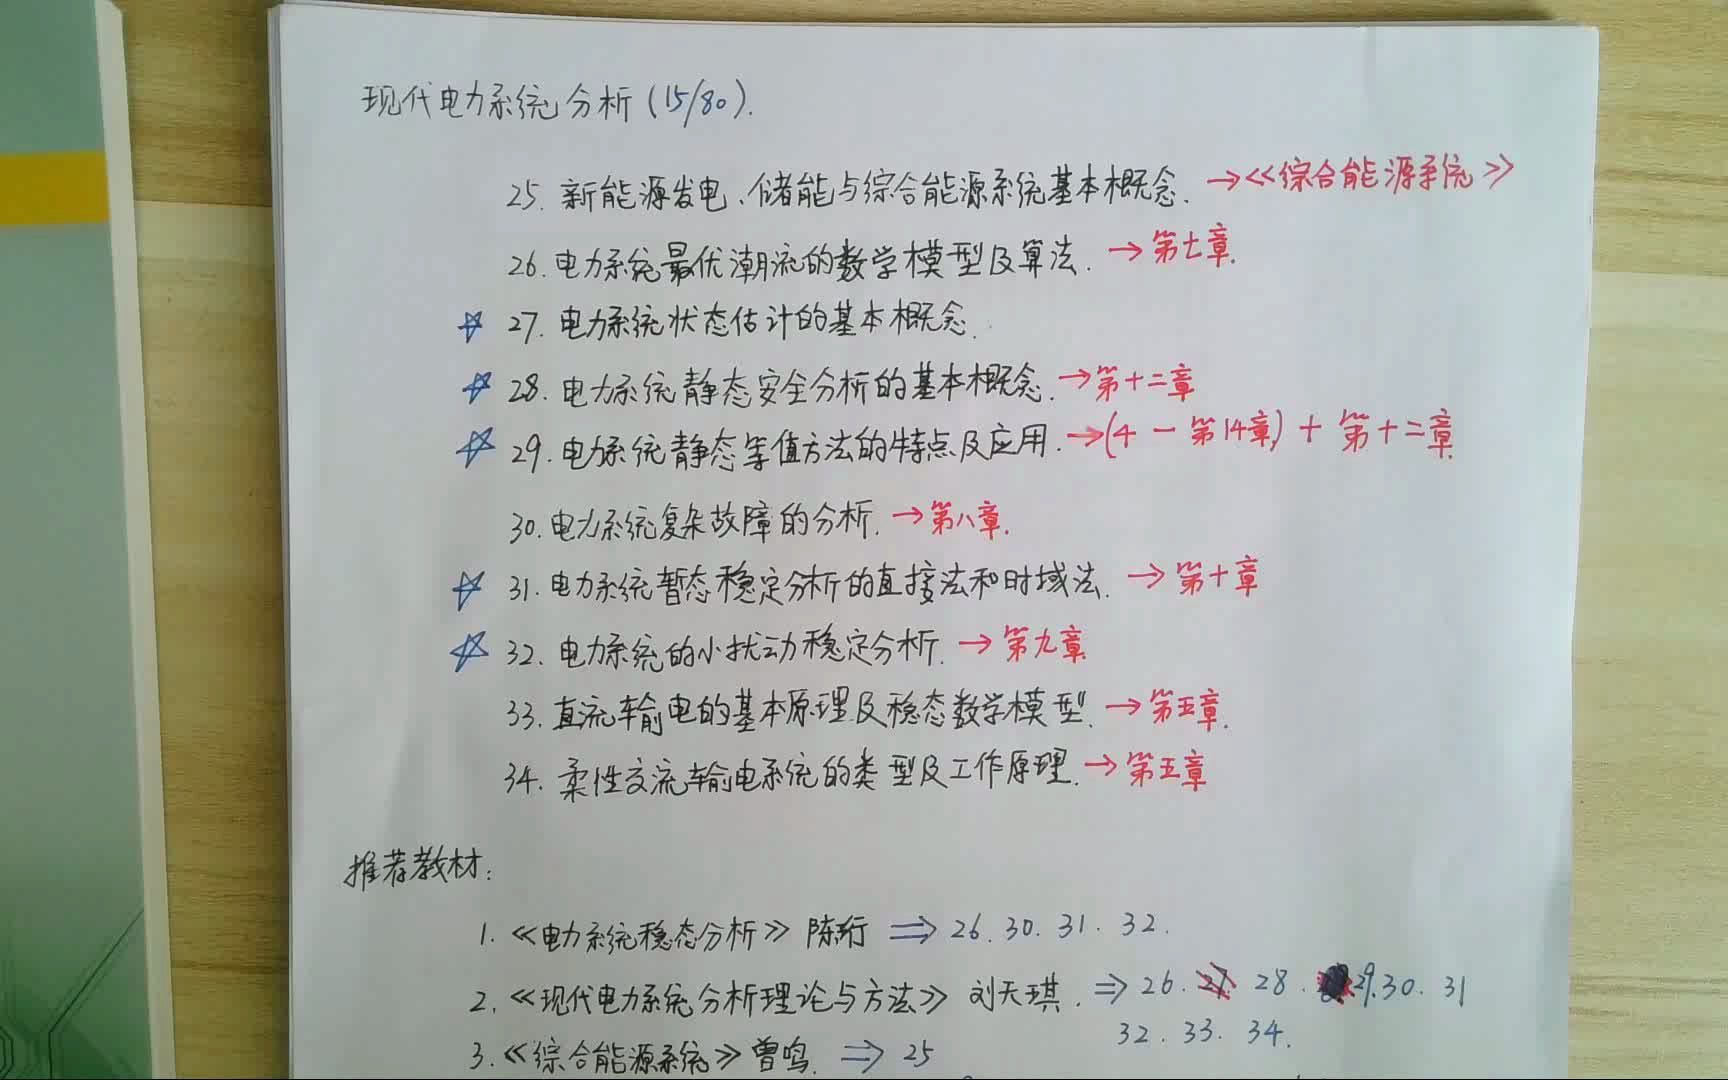 现代电力系统分析(15/80).
25. 新能源发电、储能与综合能源系统基本概念. →《综合能源系统》
26. 电力系统最优潮流的数学模型及算法. → 第七章.
☆ 27. 电力系统状态估计的基本概念.
☆ 28. 电力系统静态安全分析的基本概念. → 第十二章
☆ 29. 电力系统静态等值方法的特点及应用. → (4 — 第14章) + 第十二章
30. 电力系统复杂故障的分析. → 第八章.
☆ 31. 电力系统暂态稳定分析的直接法和时域法. → 第十章
☆ 32. 电力系统的小扰动稳定分析. → 第九章
33. 直流输电的基本原理及稳态数学模型. → 第五章.
34. 柔性交流输电系统的类型及工作原理. → 第五章
推荐教材:
1. 《电力系统稳态分析》 陈珩 ⇒ 26. 30. 31. 32.
2. 《现代电力系统分析理论与方法》 刘天琪. ⇒ 26. 27. 28. 29. 30. 31
32. 33. 34.
3. 《综合能源系统》 曾鸣. ⇒ 25